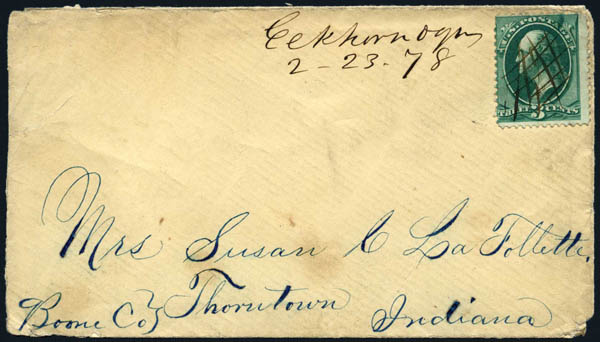 Elkhorn Ogn
2-23-78
U.S. POSTAGE
THREE 3 CENTS
Mrs Susan C La Follette.
Thorntown
Boone Co Indiana